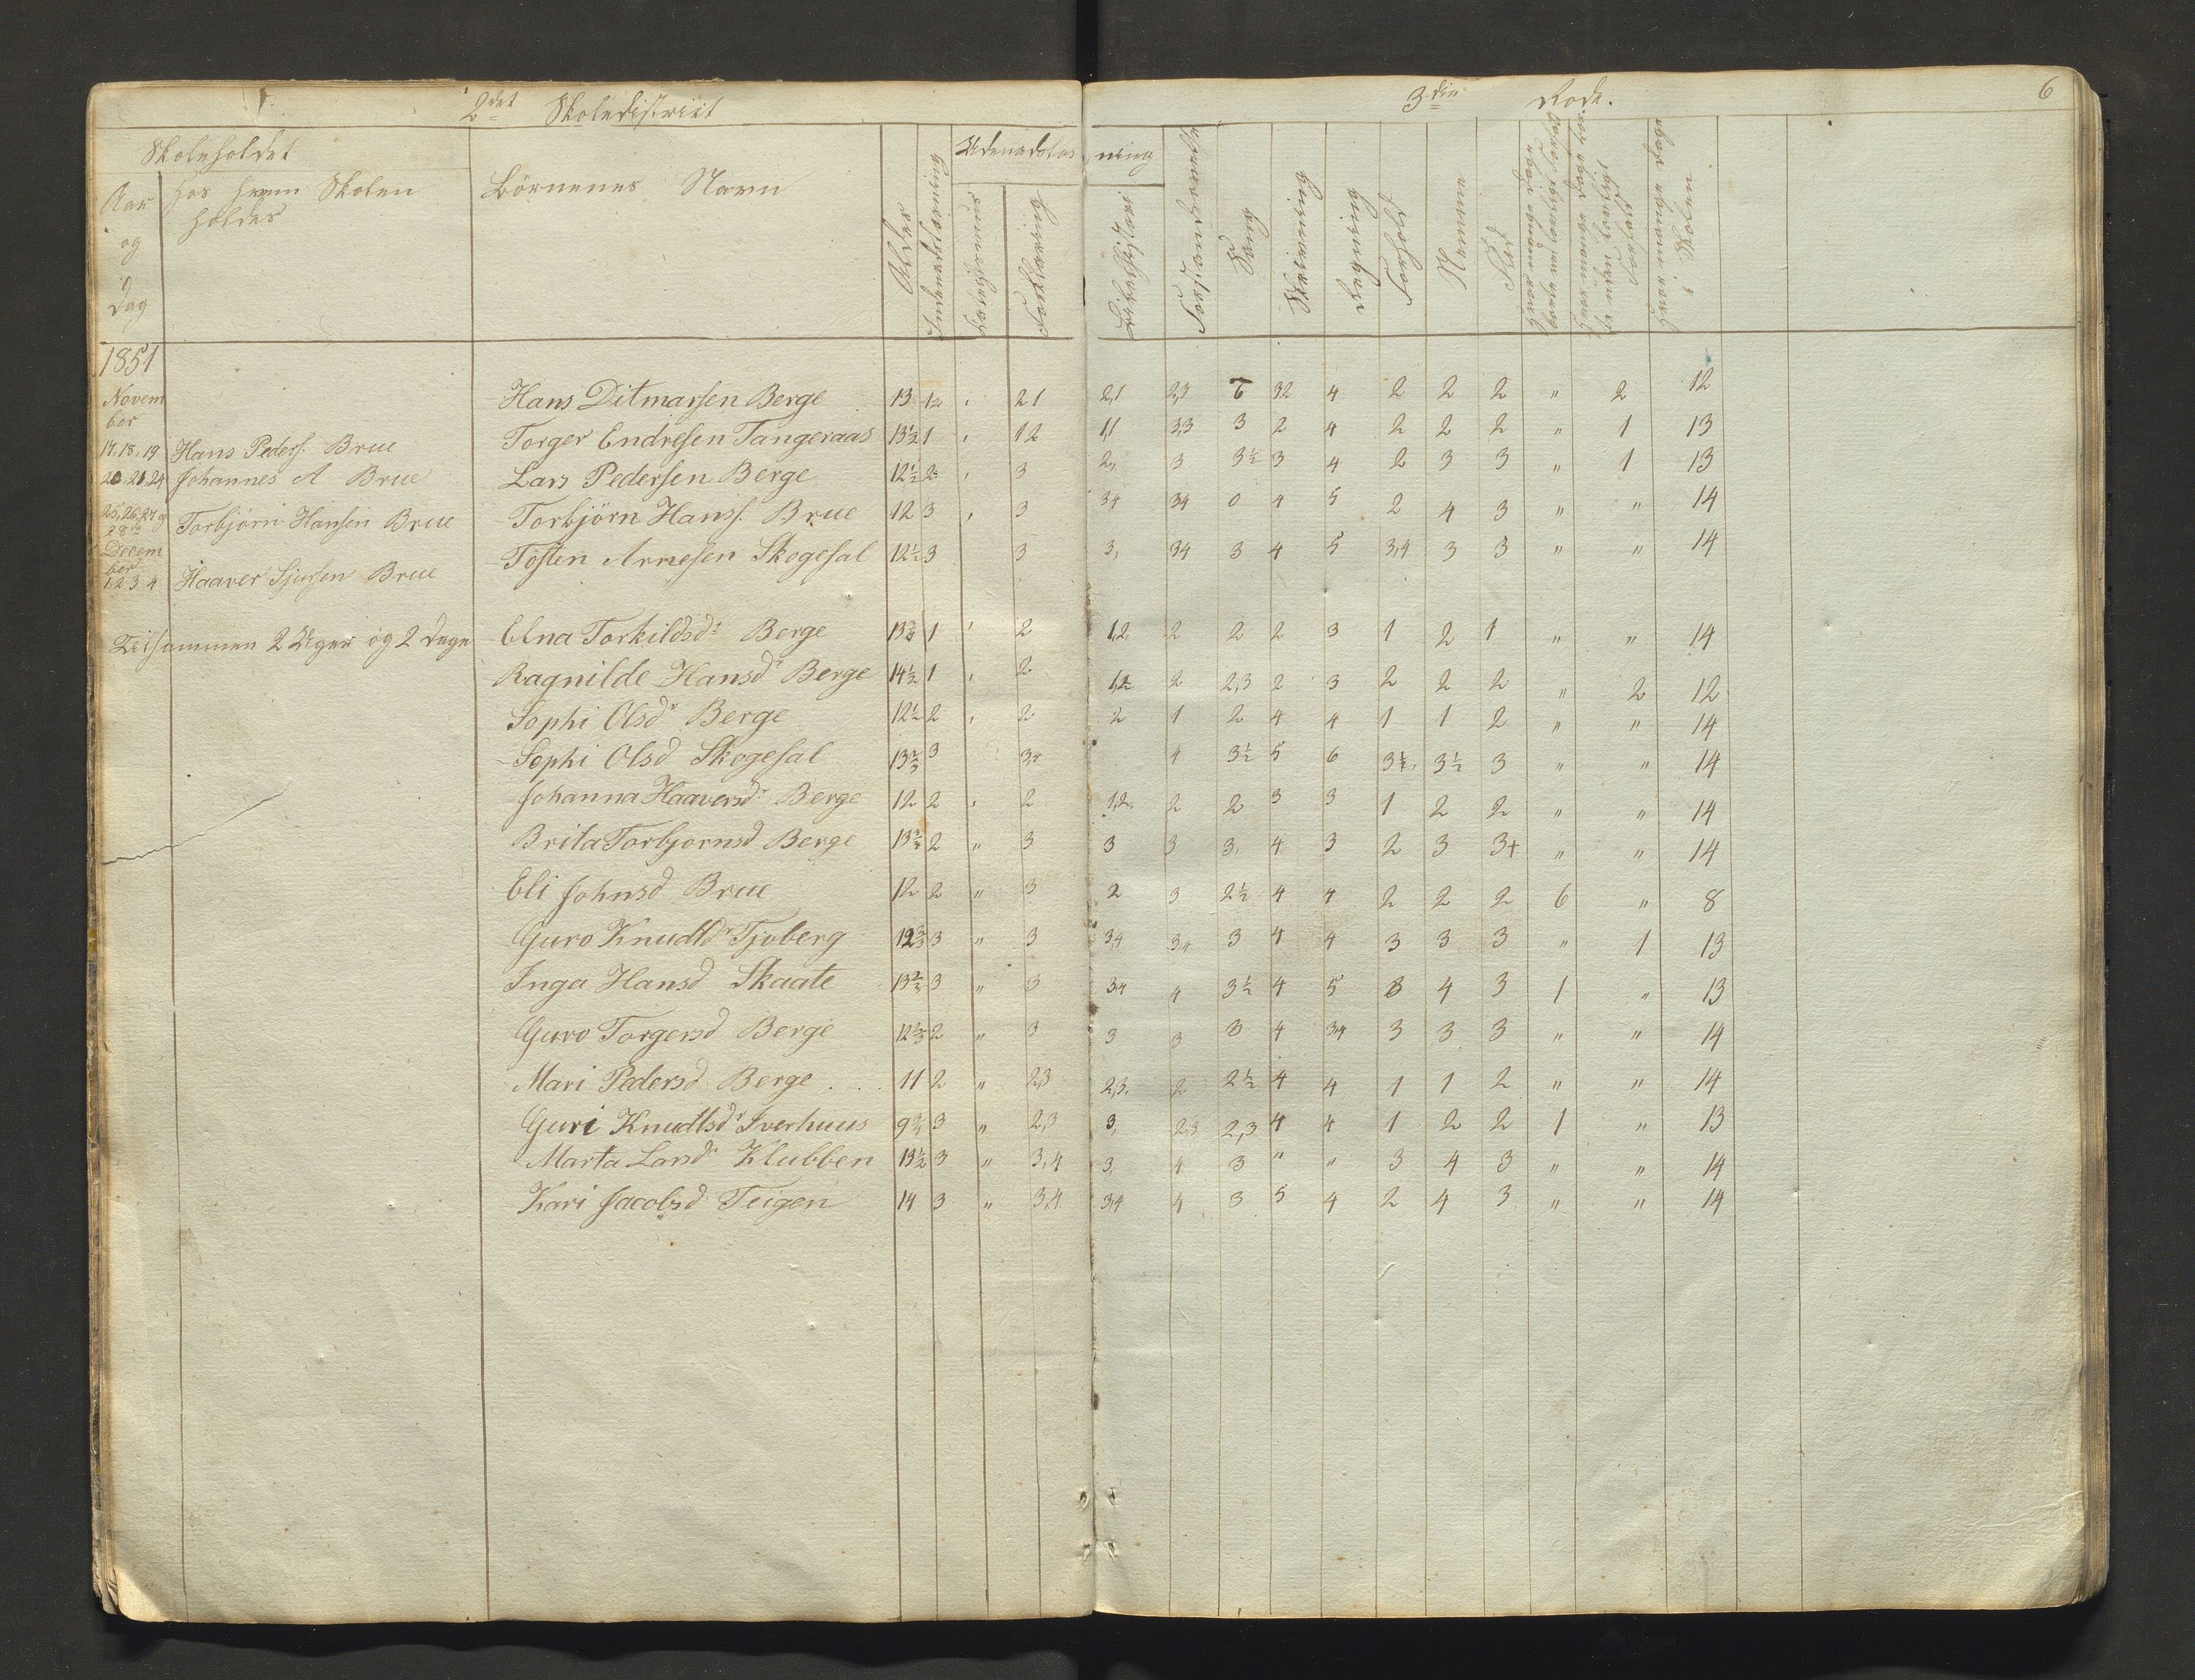 2det Skoledistrict 3die Rode. 6
Skoleholdet
Aar og Dag
hos hvem Skolen holdes
Børnenes Navn
Alder
Indenadslæsning
Udenadslæsning
Forklaring
Bibelhistorie
Sang
Skrivning
Regning
Forhold
Nemme
Flid
1851
November
17. 18. 19 Hans Peders. Brue
20. 21. 24 Johannes A Brue
25, 26, 27 og 28 Torbjørn Hansen Brue
December
1 2 3 4 Haaver Sjursen Brue
Tilsammen 2 Uger og 2 Dage
Hans Ditmarsen Berge 13 12 , 21 2,1 2,3 6 32 4 2 2 2 " 2 12
Torger Endresen Tangeraas 13½ 1 , 12 1,1 3,3 3 2 4 2 2 2 " 1 13
Lars Pedersen Berge 12½ 2 , 3 2, 3 3½ 3 4 2 3 3 " 1 13
Torbjörn Hans. Brue 12 3 , 3 34 34 0 4 5 2 4 3 " " 14
Tösten Arnesen Skogesal 12½ 3 3 3, 34 3 4 5 3,4 3 3 " " 14
Elna Torkildsdr Berge 13¾ 1 , 2 1,2. 2 2 2 3 1 2 1 " " 14
Ragnilde Hansdr Berge 14½ 1 , 2 1,2 2 2,3 2 3 2 2 2 " 2 12
Sophi Olsdr Berge 12½ 2 , 2 2 1 2 4 4 1 1 2 " " 14
Sophi Olsd Skogesal 13⅔ 3 3,4 4 3½ 5 6 3½. 3½ 3 " " 14
Johanna Haaversdr Berge 12 2 , 2 1,2. 2 2 3 3 1 2 2 " " 14
Brita Torbjornsd Berge 13¾ 2 " 3 3 3 3. 4 3 2 3 3+ " " 14
Eli Johnsd Brue 12 2 " 3 2 3 2½ 4 4 2 2 2 6 " 8
Guro Knudtdr Tjoberg 12⅔ 3 " 3 3,4 34 3 4 4 3 3 3 " 1 13
Inga Hansd Skaate 13⅔ 3 " 3 34 4 3½ 4 5 3 4 3 1 " 13
Guro Torgersd Berge 12⅓ 2 " 3 3 3 3 4 34 3 3 3 " " 14
Mari Pedersd Berge . . . 11 2 " 2,3 2,3. 2 2½ 4 4 1 1 2 " " 14
Guri Knudtsdr Iverhuus 9¾ 3 " 2,3 3, 2,3 2,3 4 4 1 2 2 1 " 13
Marta Larsdr Klubben 13½ 3 " 3,4 3, 4 3 " " 3 4 3 " " 14
Kari Jacobsd Teigen 14 3 " 3,4 3,4 4 3 5 4 2 4 3 " " 14